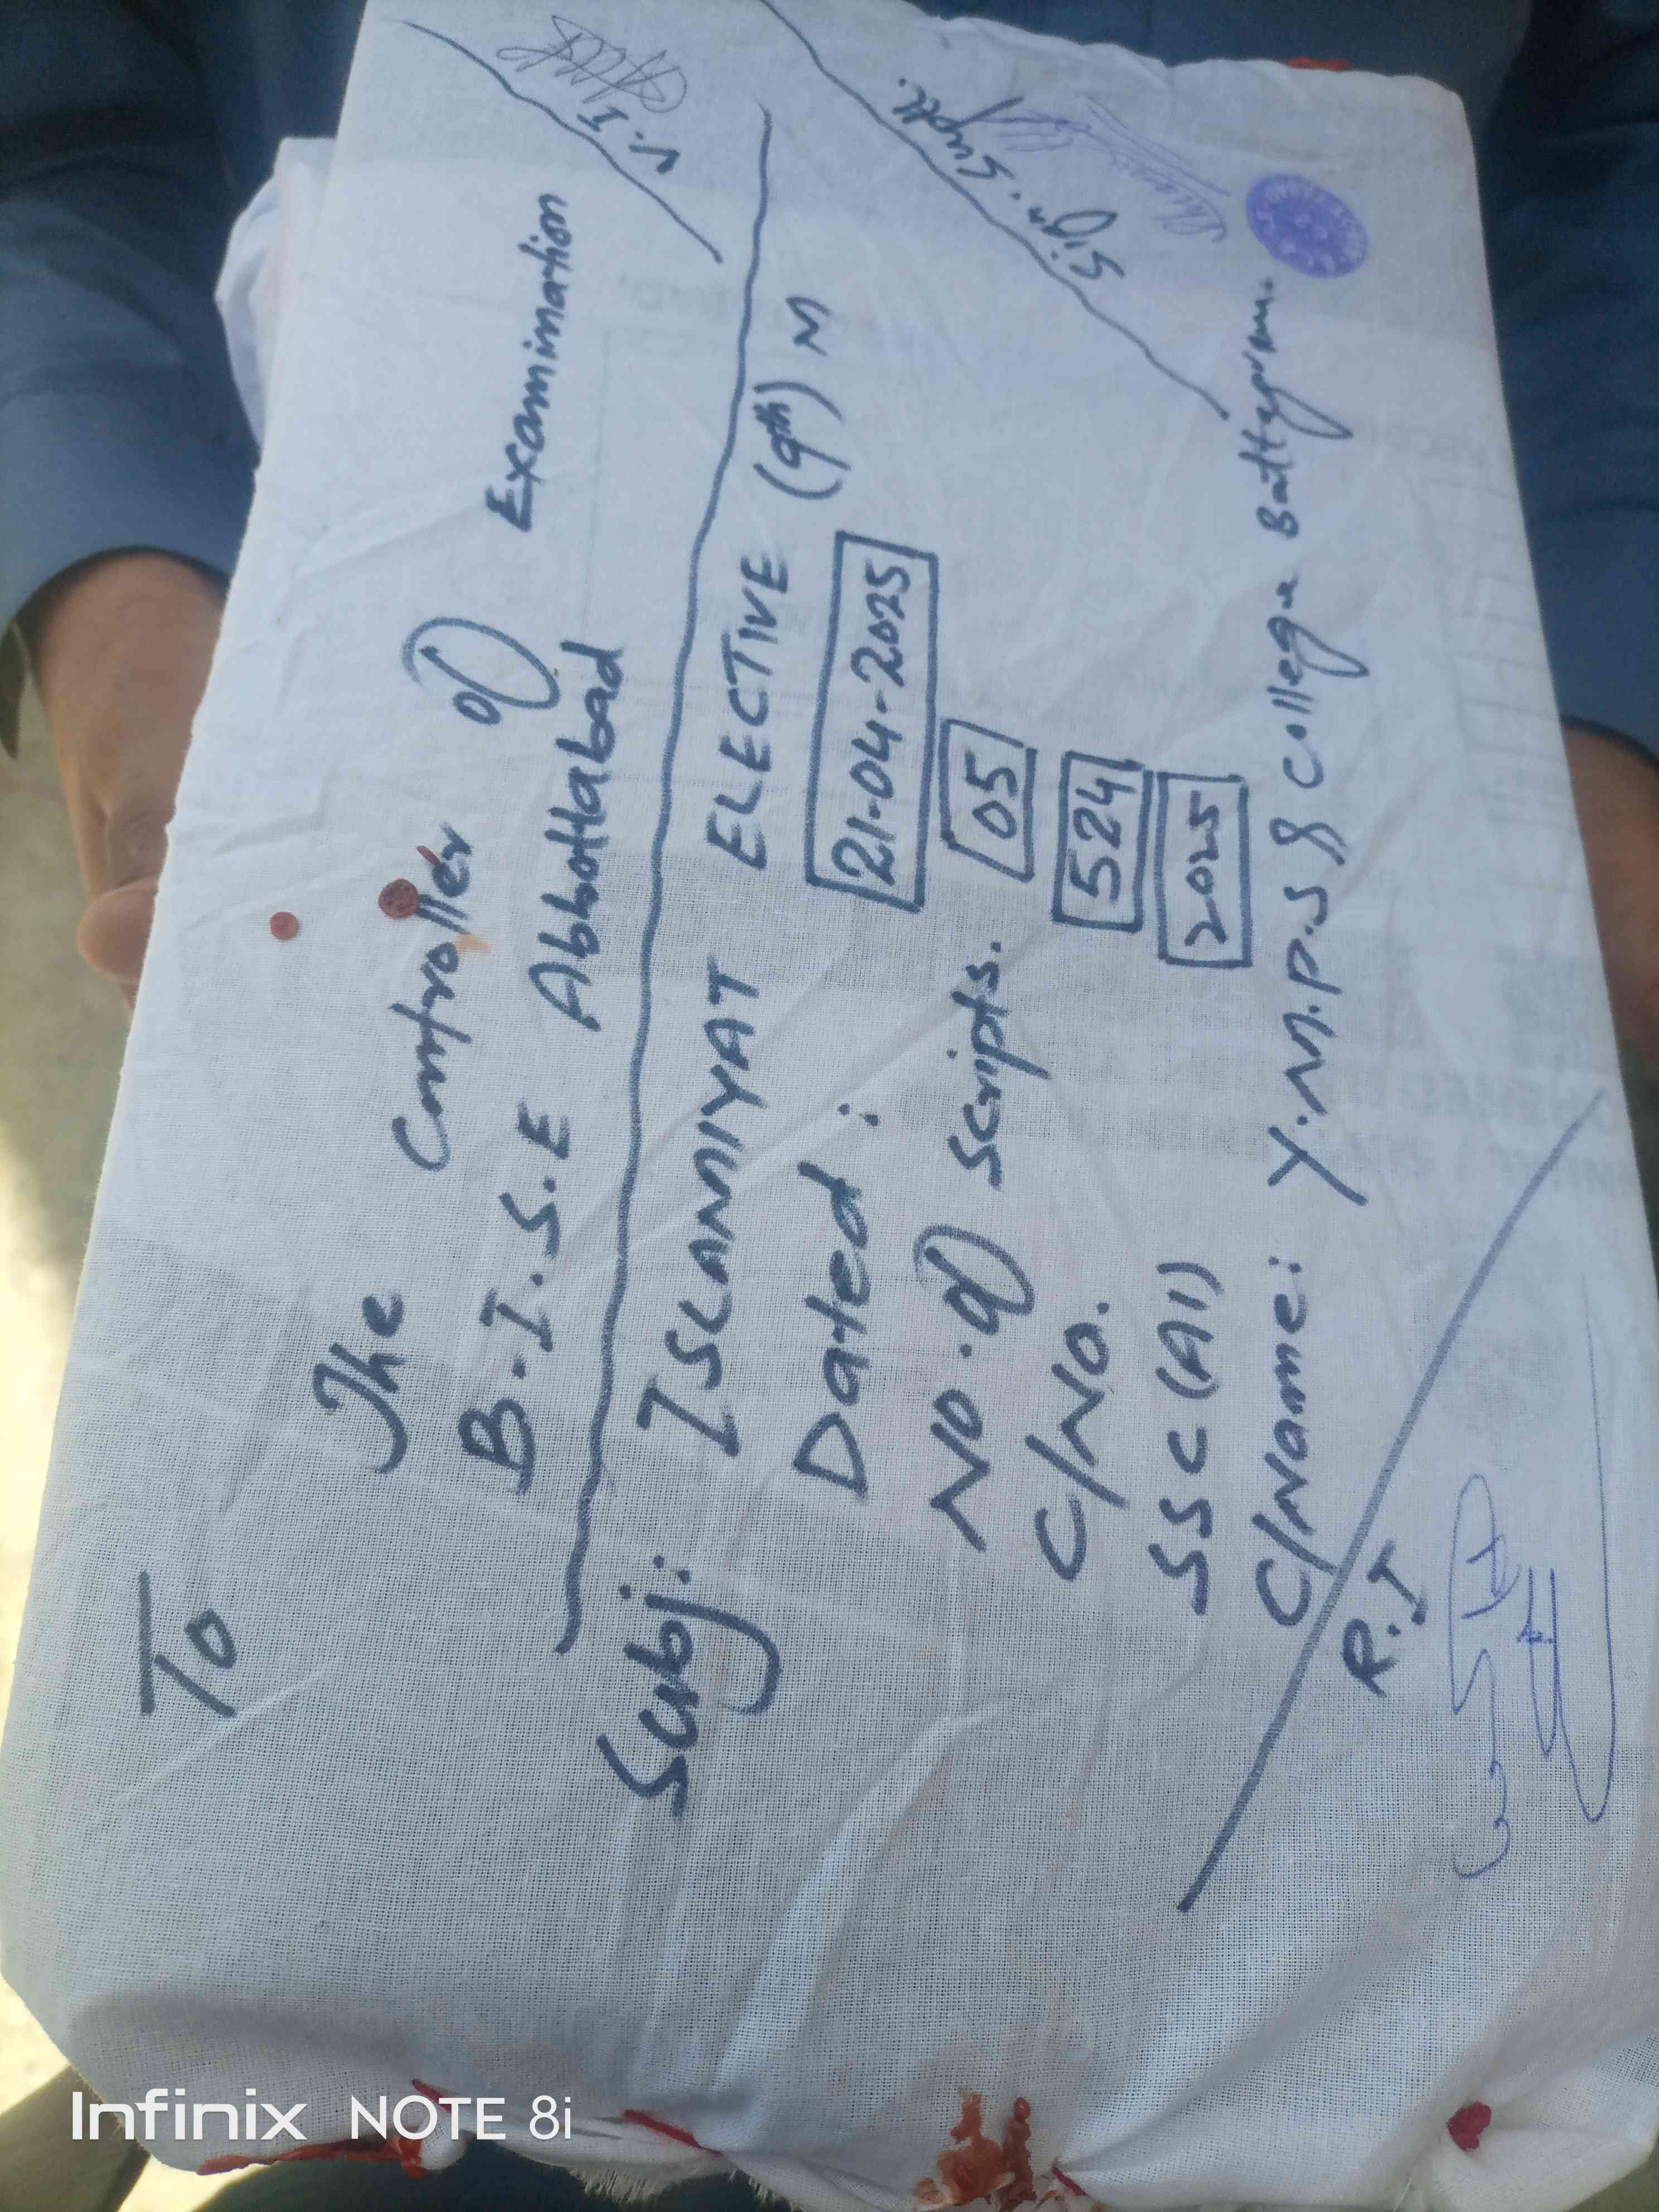 To
The Controller of Examination
B.I.S.E Abbottabad
V.I
Subj: ISLAMIYAT ELECTIVE (9th) M
Dated: 21-04-2025
No. of Scripts. 05
C/No. 524
SSC (A1) 2025
Sign. Suptt.
C/Name: Y.M.P.S & College Battagram.
R.I
Infinix NOTE 8i